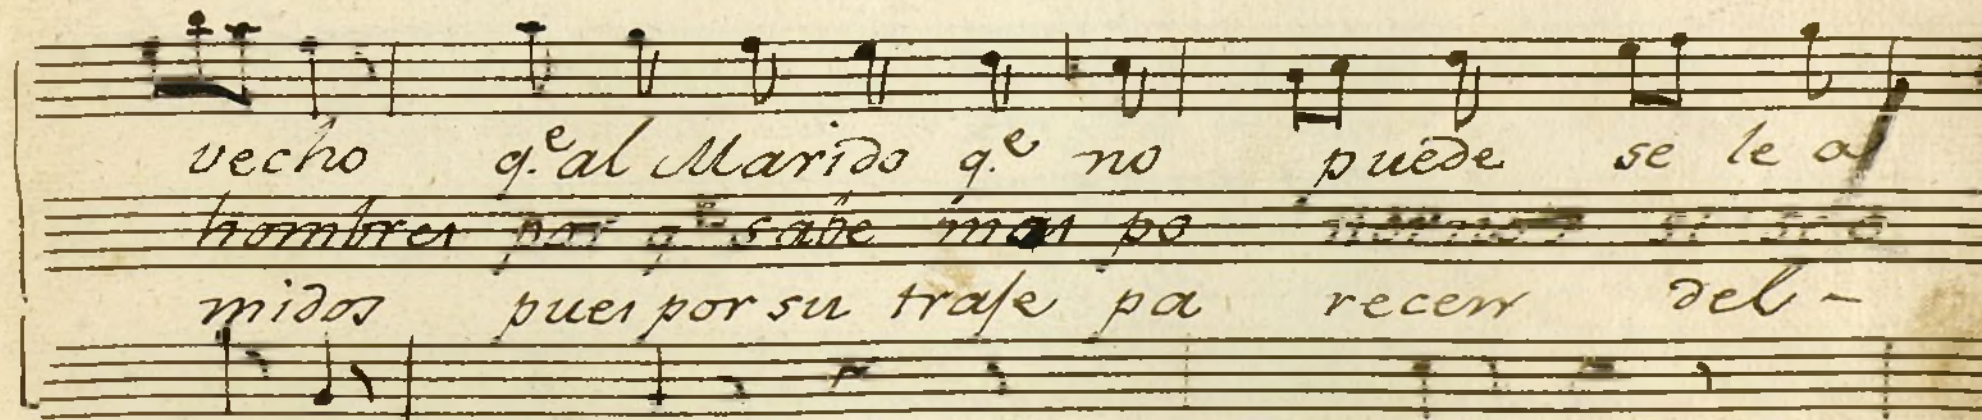 vecho q.e al Marido q.e no puede se le a
hombres por q.e save mas po
midos pues por su traje pa recen del -